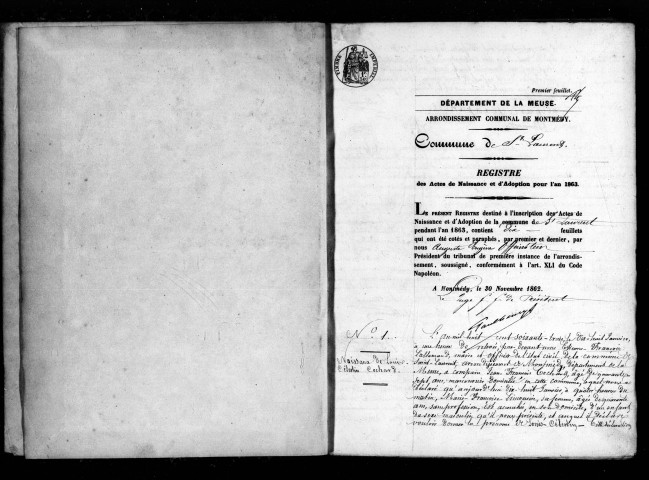 TIMBRE IMPERIAL
Premier feuillet.
DÉPARTEMENT DE LA MEUSE.
ARRONDISSEMENT COMMUNAL DE MONTMÉDY.
Commune de St Laurent.
REGISTRE
des Actes de Naissance et d'Adoption pour l'an 1863.
LE PRÉSENT REGISTRE destiné à l'inscription des Actes de
Naissance et d'Adoption de la commune de St Laurent
pendant l'an 1863, contient dix feuillets
qui ont été cotés et paraphés, par premier et dernier, par
nous Auguste
Président du tribunal de première instance de l'arrondis-
sement, soussigné, conformément à l'art. XLI du Code
Napoléon.
A Montmédy, le 30 Novembre 1862.
Le Juge Président
N° 1.
Naissance de Louis
Célestin Cochard.
L'an mil huit cent soixante-trois, le dix-huit Janvier,
à une heure de relevée, par devant nous François
maire et officier de l'état civil de la commune de
Saint-Laurent, arrondissement de Montmédy, département de la
Meuse, a comparu Jean François Cochard, âgé de quarante
sept ans, manouvrier domicilié en cette commune, lequel nous a
déclaré que aujourd'hui dix-huit Janvier, à quatre heures du
matin, Marie Françoise sa femme, âgée de quarante
ans, sans profession, est accouchée, en son domicile, d'un enfant
du sexe masculin, qu'il nous présente, et auquel il déclare
vouloir donner les prénoms de Louis Célestin. Cette déclaration